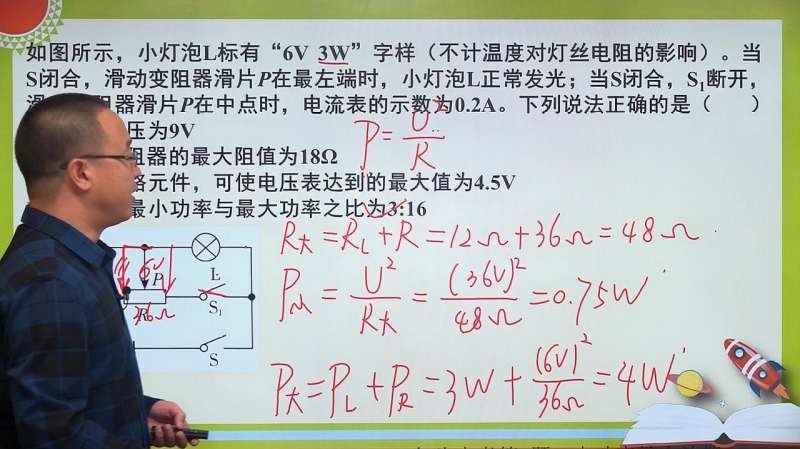 如图所示，小灯泡L标有“6V 3W”字样（不计温度对灯丝电阻的影响）。当
S闭合，滑动变阻器滑片P在最左端时，小灯泡L正常发光；当S闭合，S₁断开，
阻器滑片P在中点时，电流表的示数为0.2A。下列说法正确的是（　　）
压为9V
P=U²/R
阻器的最大阻值为18Ω
路元件，可使电压表达到的最大值为4.5V
最小功率与最大功率之比为3:16
R大=R_L+R=12Ω+36Ω=48Ω
L
6V
P
S₁
36Ω
S
=U²/R大=(36V)²/48Ω=0.75W
P大=P_L+P_R=3W+(6V)²/36Ω=4W